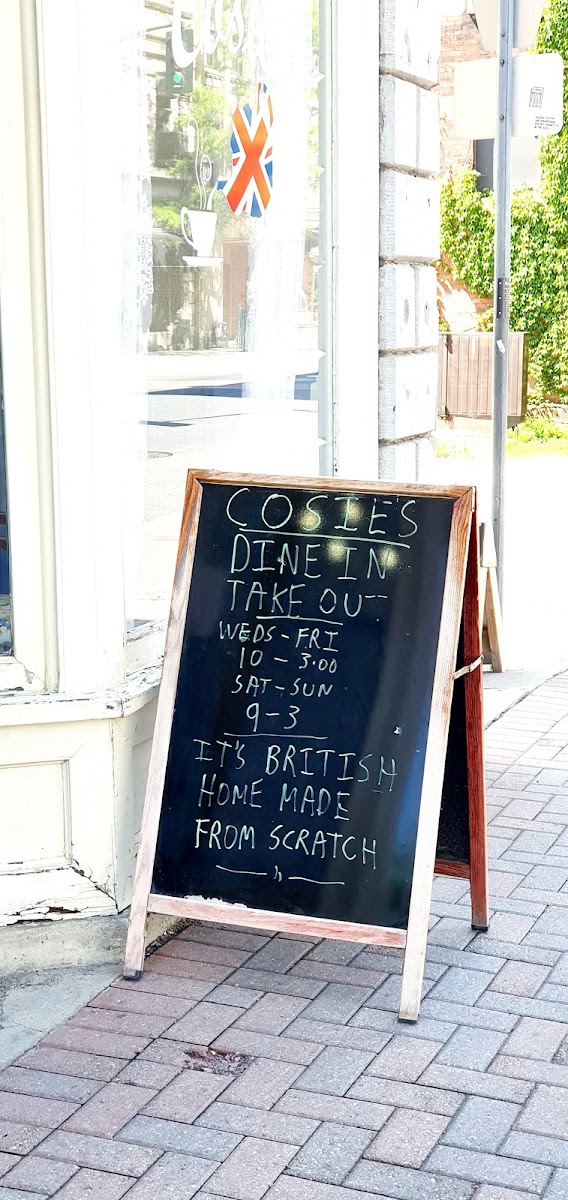 COSIE'S
DINE IN
TAKE OUT
WEDS - FRI
10 - 3:00
SAT - SUN
9 - 3
IT'S BRITISH
HOME MADE
FROM SCRATCH